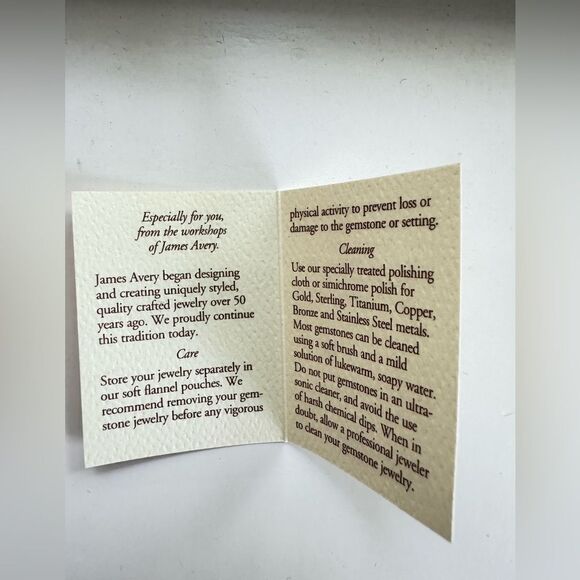 Especially for you,
from the workshops
of James Avery.
James Avery began designing
and creating uniquely styled,
quality crafted jewelry over 50
years ago. We proudly continue
this tradition today.
Care
Store your jewelry separately in
our soft flannel pouches. We
recommend removing your gem-
stone jewelry before any vigorous
physical activity to prevent loss or
damage to the gemstone or setting.
Cleaning
Use our specially treated polishing
cloth or simichrome polish for
Gold, Sterling, Titanium, Copper,
Bronze and Stainless Steel metals.
Most gemstones can be cleaned
using a soft brush and a mild
solution of lukewarm, soapy water.
Do not put gemstones in an ultra-
sonic cleaner, and avoid the use
of harsh chemical dips. When in
doubt, allow a professional jeweler
to clean your gemstone jewelry.